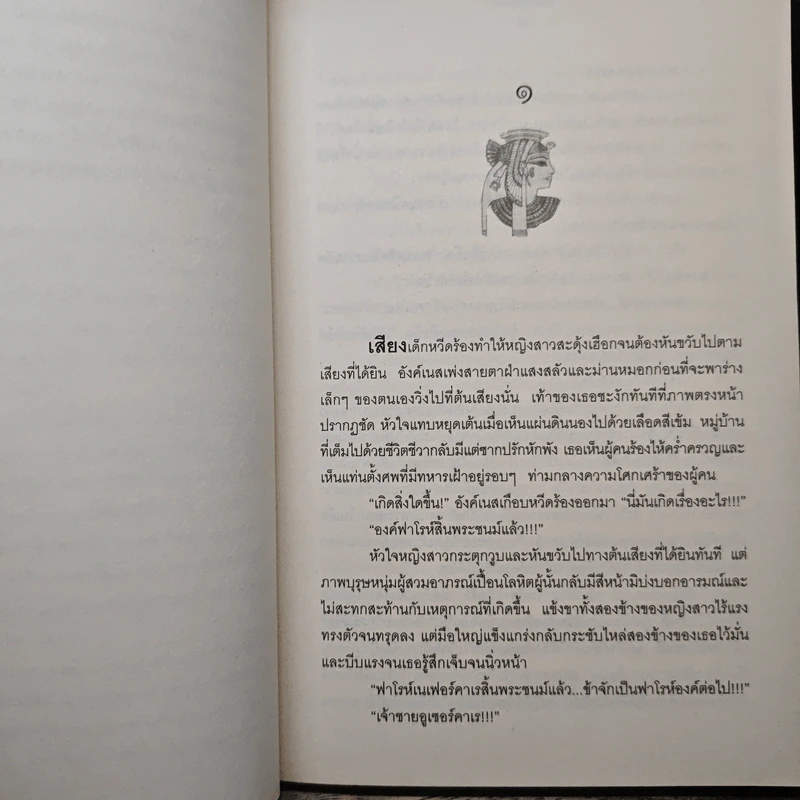 ๑
เสียงเด็กหวีดร้องทำให้หญิงสาวสะดุ้งเฮือกจนต้องหันขวับไปตาม
เสียงที่ได้ยิน อังค์เนสเพ่งสายตาฝ่าแสงสลัวและม่านหมอกก่อนที่จะพาร่าง
เล็กๆ ของตนเองวิ่งไปที่ต้นเสียงนั่น เท้าของเธอชะงักทันทีที่ภาพตรงหน้า
ปรากฏชัด หัวใจแทบหยุดเต้นเมื่อเห็นแผ่นดินนองไปด้วยเลือดสีเข้ม หมู่บ้าน
ที่เต็มไปด้วยชีวิตชีวากลับมีแต่ซากปรักหักพัง เธอเห็นผู้คนร้องไห้คร่ำครวญและ
เห็นแท่นตั้งศพที่มีทหารเฝ้าอยู่รอบๆ ท่ามกลางความโศกเศร้าของผู้คน
“เกิดสิ่งใดขึ้น!” อังค์เนสเกือบหวีดร้องออกมา “นี่มันเกิดเรื่องอะไร!!!”
“องค์ฟาโรห์สิ้นพระชนม์แล้ว!!!”
หัวใจหญิงสาวกระตุกวูบและหันขวับไปทางต้นเสียงที่ได้ยินทันที แต่
ภาพบุรุษหนุ่มผู้สวมอาภรณ์เปื้อนโลหิตผู้นั้นกลับมีสีหน้ามิบ่งบอกอารมณ์และ
ไม่สะทกสะท้านกับเหตุการณ์ที่เกิดขึ้น แข้งขาทั้งสองข้างของหญิงสาวไร้แรง
ทรงตัวจนทรุดลง แต่มือใหญ่แข็งแกร่งกลับกระชับไหล่สองข้างของเธอไว้มั่น
และบีบแรงจนเธอรู้สึกเจ็บจนนิ่วหน้า
“ฟาโรห์เนเฟอร์คาเรสิ้นพระชนม์แล้ว...ข้าจักเป็นฟาโรห์องค์ต่อไป!!!”
“เจ้าชายอูเซอร์คาเร!!!”